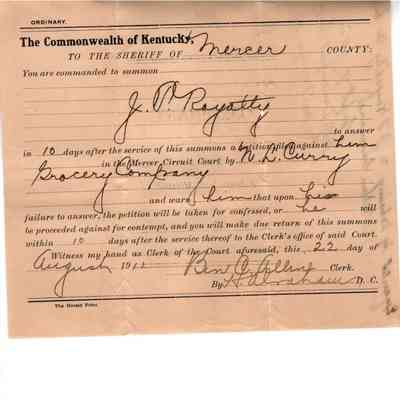 ORDINARY.
The Commonwealth of Kentucky,
TO THE SHERIFF OF Mercer COUNTY:
You are commanded to summon
J. P. Royalty
to answer
in 10 days after the service of this summons a petition filed against him
in the Mercer Circuit Court by N. L. Curry
Grocery Company
and warn him that upon his
failure to answer, the petition will be taken for confessed, or he will
be proceeded against for contempt, and you will make due return of this summons
within 10 days after the service thereof to the Clerk's office of said Court.
Witness my hand as Clerk of the Court aforesaid, this 22 day of
August 1911 Ben C. Allin Clerk.
By D. C.
The Herald Print.